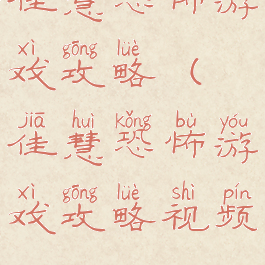 佳慧恐怖游
xì gōng lüè
戏攻略（
jiā huì kǒng bù yóu
佳慧恐怖游
xì gōng lüè shì pín
戏攻略视频